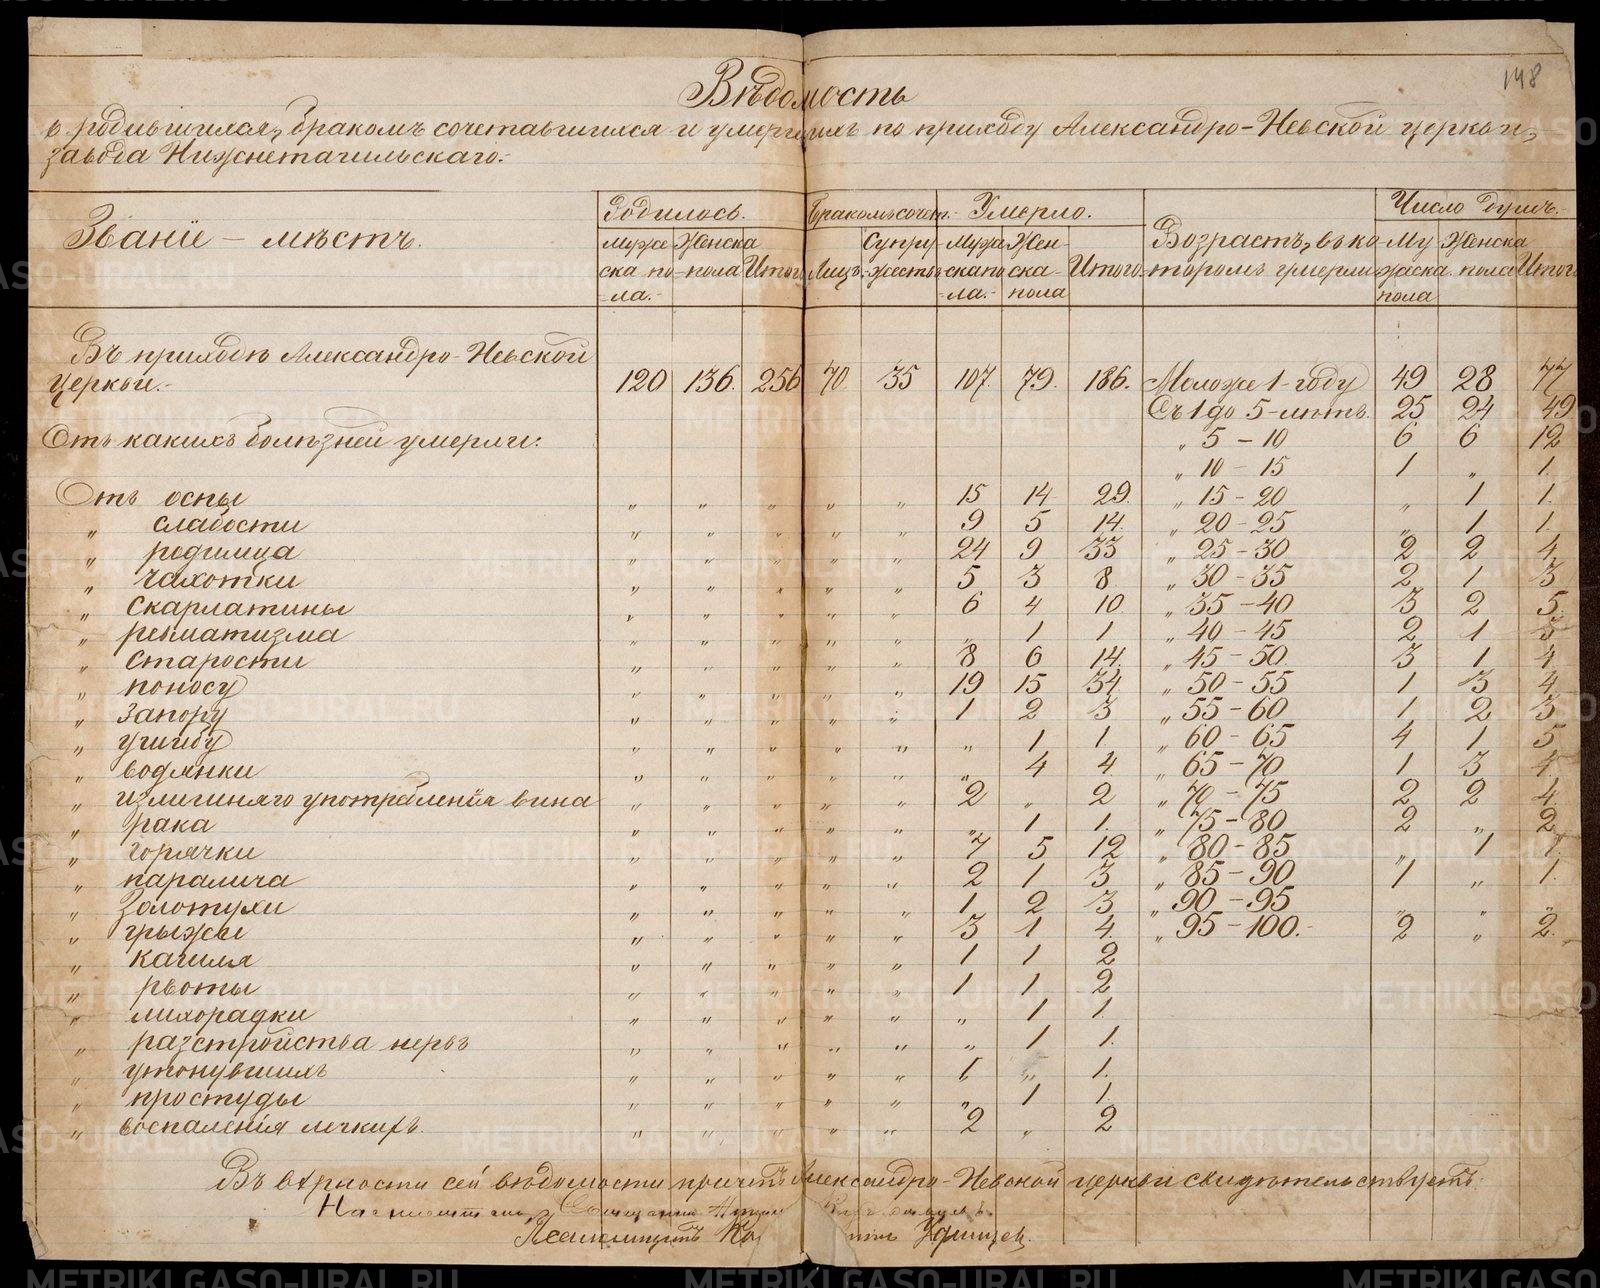 148
Вѣдомость
о родившихся, бракомъ сочетавшихся и умершихъ по приходу Александро-Невской церкви,
завода Нижнетагильскаго.-
Званіе - мѣстъ.
Родилось.
Бракомъ сочет.-
Умерло.
Возрастъ, въ ко-
торомъ умерли
Число душъ.-
Муже- Женска Итого Лицъ. Супру- Мужа Жен- Итого Му Женска Итого
ска по- пола жествъ скапо ска- жаска. пола
-ла.- -ла.- пола пола
Въ приходѣ Александро-Невской
церкви.- 120 136. 256 70 35 107 79. 186. Моложе 1-году 49 28 77
Съ 1 до 5-лѣтъ. 25 24 49
Отъ какихъ болѣзней умерли: „ 5 - 10 6 6 12
„ 10 - 15 1 „ 1.
Отъ оспы „ „ „ „ „ 15 14 29. „ 15 - 20 „ 1 1.
„ слабости „ „ „ „ „ 9 5 14. „ 20 - 25 „ 1 1.
„ родимца „ „ „ „ „ 24 9 33 „ 25 - 30 2 2 4
„ чахотки „ „ „ „ „ 5 3 8 „ 30 - 35 2 1 3
„ скарлатины „ „ „ „ „ 6 4 10 „ 35 - 40 3 2 5.
„ ревматизма „ „ „ „ „ „ 1 1 „ 40 - 45 2 1 3
„ старости „ „ „ „ „ 8 6 14. „ 45 - 50. 3 1 4
„ поносу „ „ „ „ „ 19 15 34 „ 50 - 55 1 3 4
„ запору „ „ „ „ „ 1 2 3 „ 55 - 60 1 2 3
„ ушибу „ „ „ „ „ „ 1 1 „ 60 - 65 4 1 5
„ водянки „ „ „ „ „ „ 4 4. „ 65 - 70 1 3 4
„ излишняго употрбленія вина „ „ „ „ „ 2 „ 2 „ 70 - 75 2 2 4
„ рака „ „ „ „ „ „ 1 1. „ 75 - 80 2 „ 2
„ горячки „ „ „ „ „ 7 5 12 „ 80 - 85 „ 1 1
„ паралича „ „ „ „ „ 2 1 3 „ 85 - 90 1 „ 1.
„ золотухи „ „ „ „ „ 1 2 3 „ 90 - 95 „ „ „
„ грыжы „ „ „ „ „ 3 1 4. „ 95 - 100.- 2 „ 2.
„ кашля „ „ „ „ „ 1 1 2
„ рвоты „ „ „ „ „ 1 1 2
„ лихорадки „ „ „ „ „ „ 1 1.
„ разстройства нервъ „ „ „ „ „ „ 1 1.
„ утонувшихъ „ „ „ „ „ 1 „ 1.
„ простуды „ „ „ „ „ „ 1 1.
„ воспаленія легкихъ. „ „ „ „ „ 2 „ 2
Въ вѣрности сей вѣдомости причтъ Александро-Невской церкви свидѣтельствуетъ:
Настоятель, Священникъ
Псаломщикъ Удинцев.
METRIKI.GASO-URAL.RU